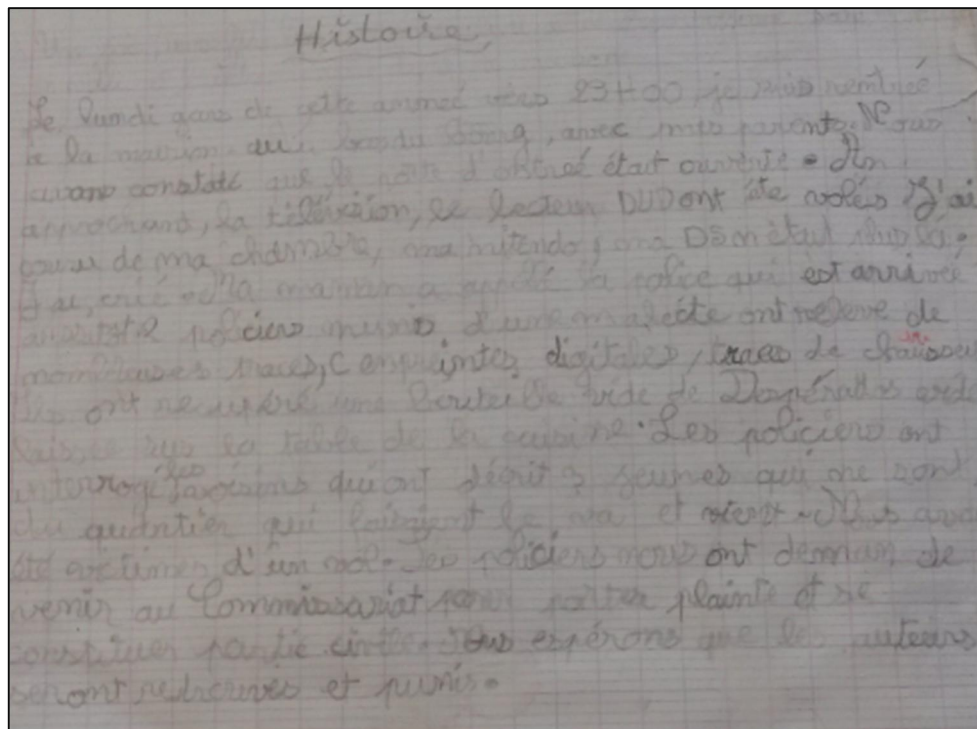 Histoire
Le lundi gars de cette anneé vers 23H00 je suis rentreé
a la maison au du bourg, avec mes parents. Nous
avons constaté que la porte d'entreé était ouverte. En
approchant, la télévision, le lecteur DVD ont été volés. J'ai
couru de ma chambre, ma nitendo, ma DS n'était plus là.
J'ai crié. Ma maman a appelé la police qui est arrivée
policiers munis d'une malette ont relevé de
nombreuses traces, empreintes digitales, traces de chaussu
ils ont recupéré une bouteille vide de Despérados
laissée sur la table de la cuisine. Les policiers ont
interrogé les voisins qui ont décrit 3 jeunes qui ne sont
du quartier qui faisaient le va et vient. Nous
été victimes d'un vol. Les policiers nous ont deman de
venir au Commissariat pour porter plainte et se
constituer partie civile. Nous espérons que les auteurs
seront retrouvés et punis.